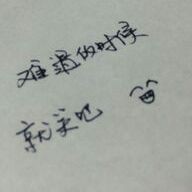 难過的时候
就笑吧